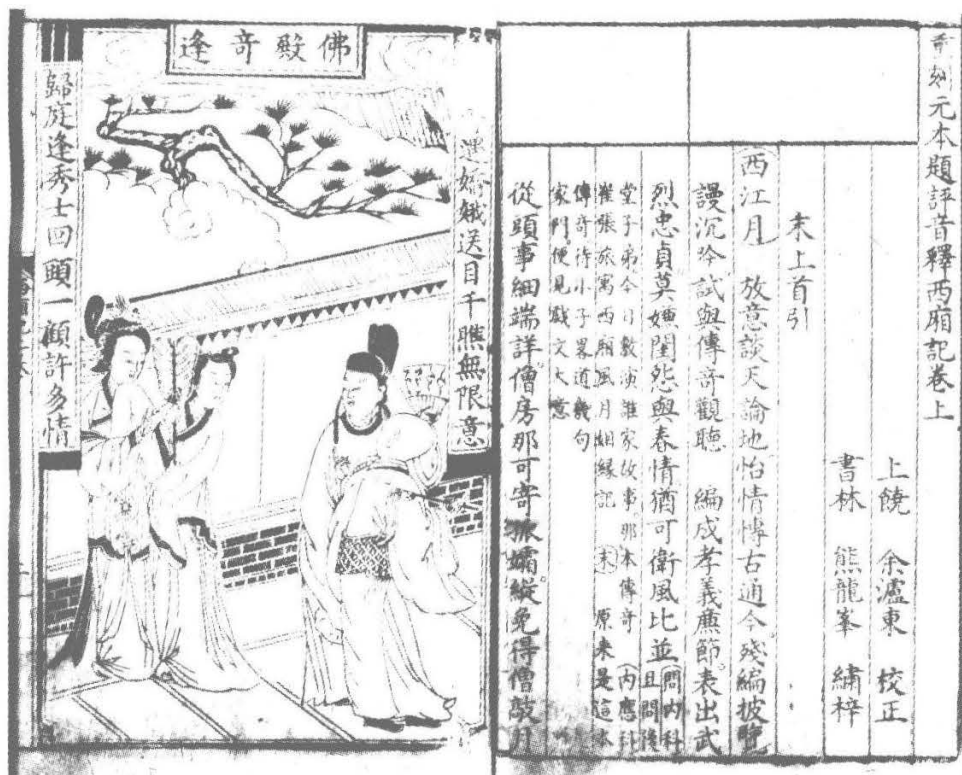 重刻元本題評音釋西廂記卷上
上饒 余瀘東 校正
書林 熊龍峯 繡梓
末上首引
西江月 放意談天論地怡情博古通今殘編披覽
謾沉吟試與傳奇觀聽 編成孝義廉節表出武
烈忠貞莫嫌閨怨與春情猶可衛風比並 問內科 且問後
堂子弟今日敷演誰家故事那本傳奇 內應科
崔張旅寓西廂風月姻緣記 末 原来是這本
傳奇待小子畧道幾句
家門便見戲文大意
從頭事細端詳僧房那可寄孤孀縱免得僧敲月
佛殿奇逢
遇嬌娥送目千瞧無限意
歸庭逢秀士回頭一顧許多情